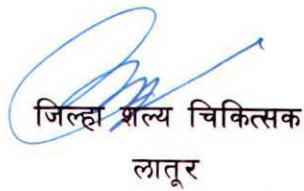 जिल्हा शल्य चिकित्सक
लातूर